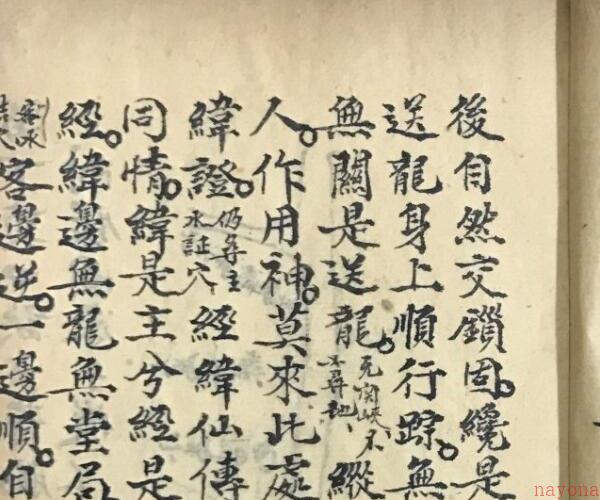 後自然交鎖固纔是
送龍身上順行踪無
無關是送龍無関峡不必尋地縱
人作用神莫來此處
緯證仍尋主水証穴經緯仙傳
同情緯是主兮經是
經緯邊無龍無堂局
客水客邊逆一邊順自
nayona